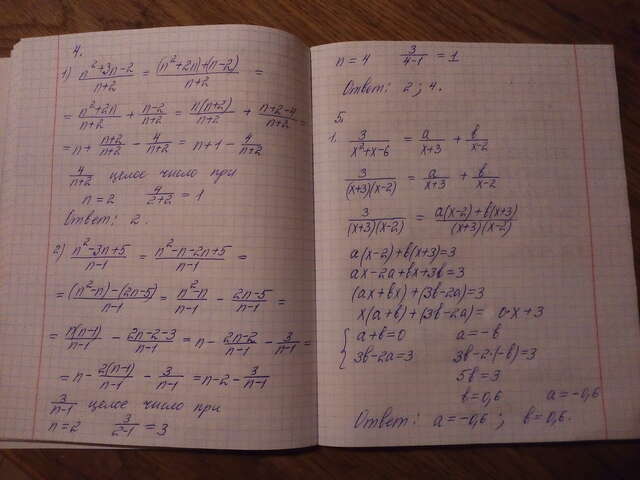 4.
1) (n²+3n-2)/(n+2) = ((n²+2n)+(n-2))/(n+2) =
= (n²+2n)/(n+2) + (n-2)/(n+2) = n(n+2)/(n+2) + (n+2-4)/(n+2) =
= n + (n+2)/(n+2) - 4/(n+2) = n+1 - 4/(n+2)
4/(n+2) целое число при
n=2 4/(2+2) = 1
Ответ: 2.
2) (n²-3n+5)/(n-1) = (n²-n-2n+5)/(n-1) =
= ((n²-n)-(2n-5))/(n-1) = (n²-n)/(n-1) - (2n-5)/(n-1) =
= n(n-1)/(n-1) - (2n-2-3)/(n-1) = n - (2n-2)/(n-1) - 3/(n-1) =
= n - 2(n-1)/(n-1) - 3/(n-1) = n-2 - 3/(n-1)
3/(n-1) целое число при
n=2 3/(2-1) = 3
n=4 3/(4-1) = 1
Ответ: 2; 4.
5.
1. 3/(x²+x-6) = a/(x+3) + b/(x-2)
3/((x+3)(x-2)) = a/(x+3) + b/(x-2)
3/((x+3)(x-2)) = (a(x-2)+b(x+3))/((x+3)(x-2))
a(x-2)+b(x+3)=3
ax-2a+bx+3b=3
(ax+bx)+(3b-2a)=3
x(a+b)+(3b-2a)= 0·x+3
{ a+b=0 a=-b
3b-2a=3 3b-2·(-b)=3
5b=3
b=0,6 a=-0,6
Ответ: a=-0,6; b=0,6.